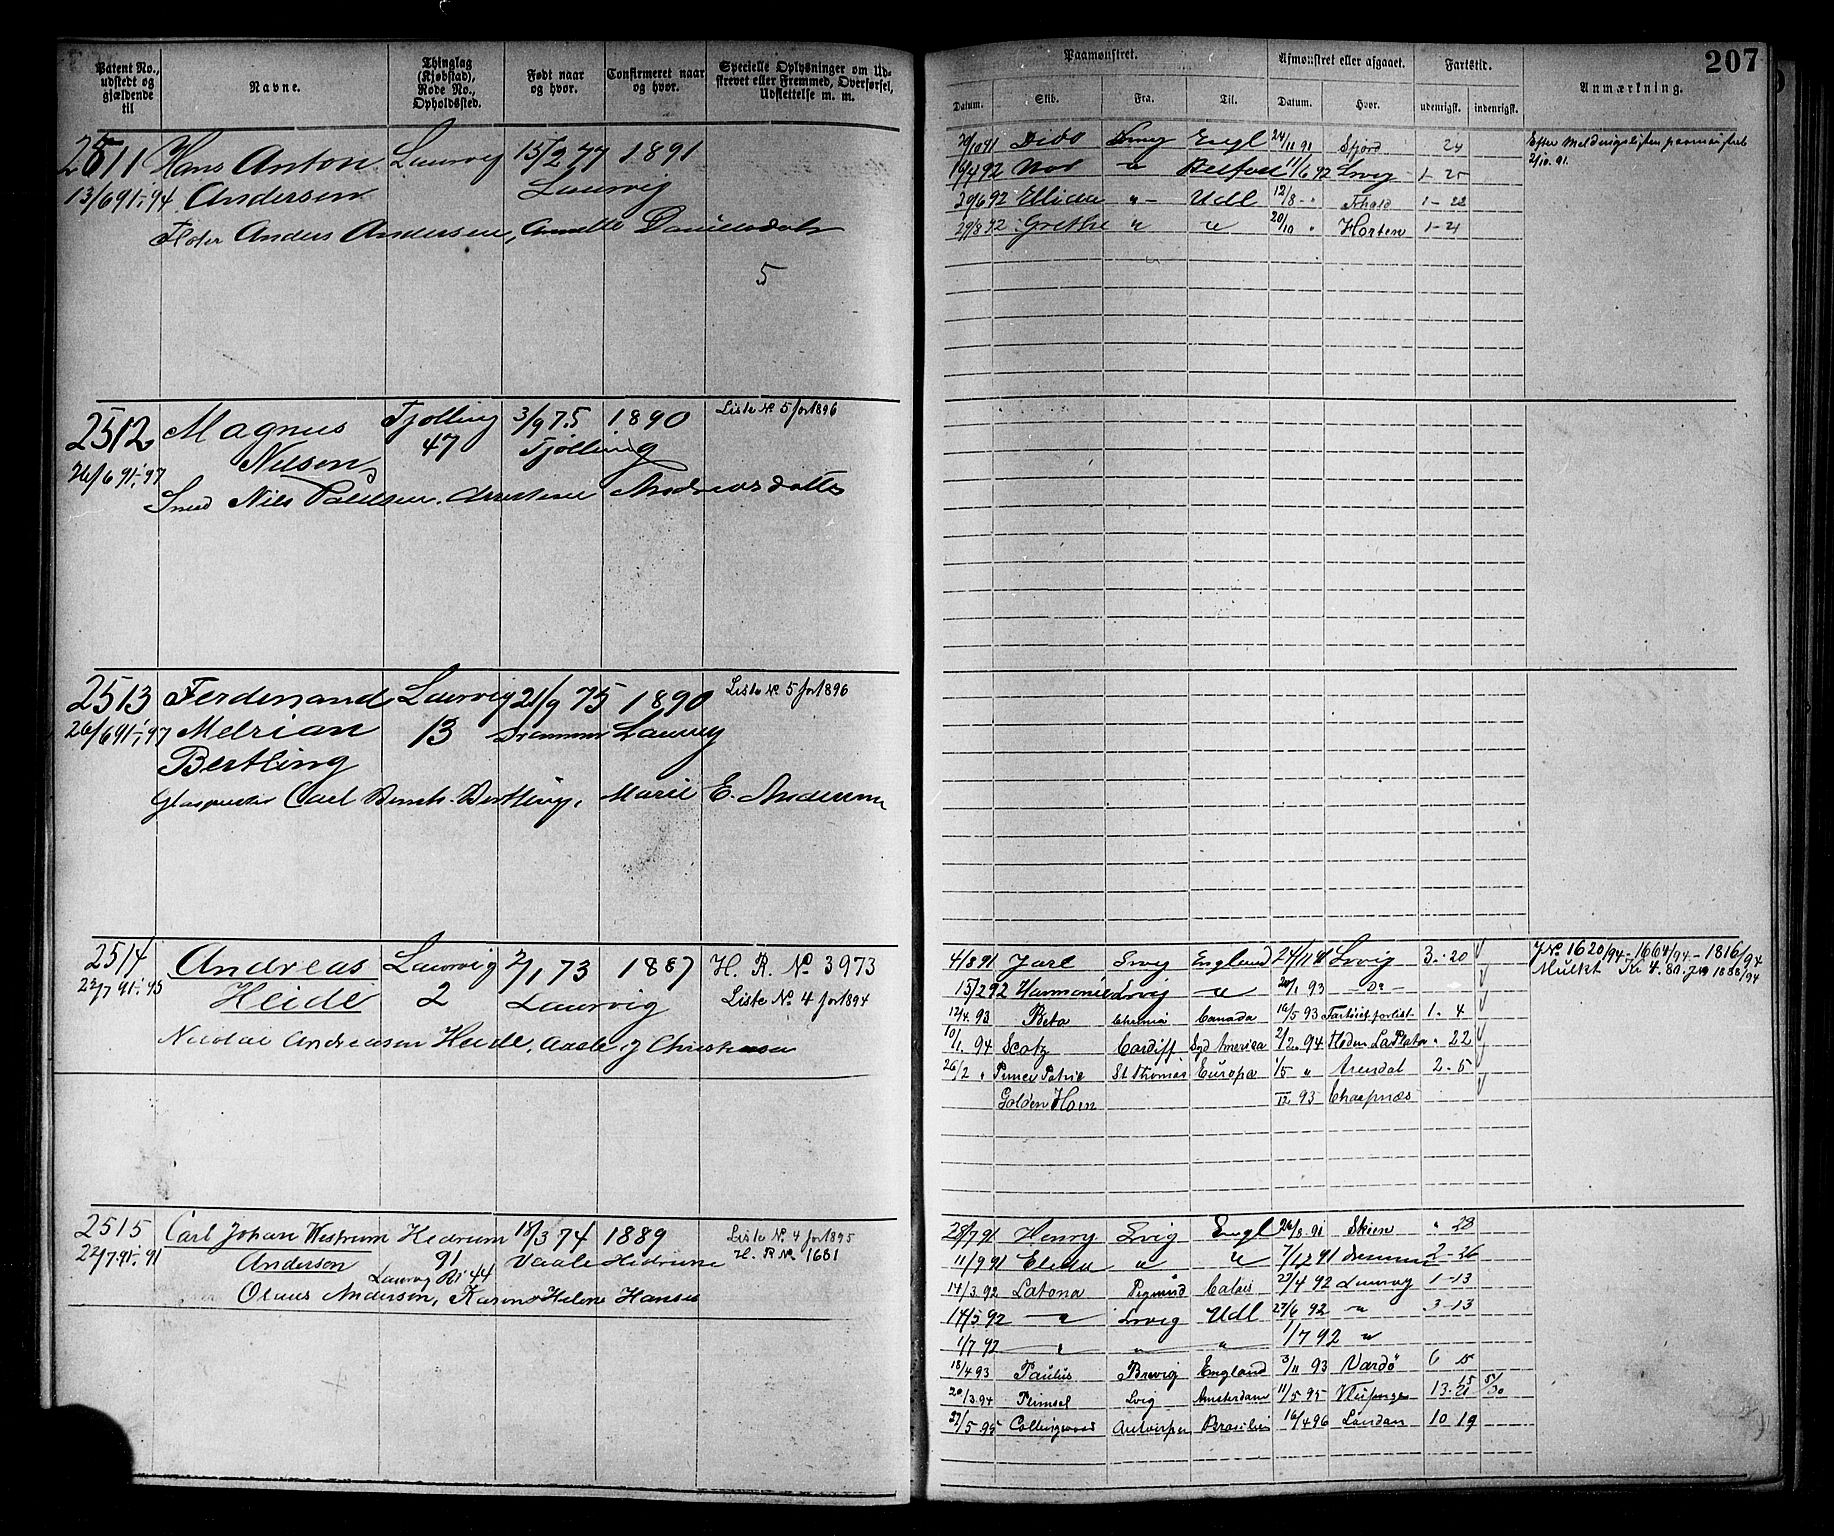 207
Patent No., udstedt og gjældende til
Navne.
Thinglag (Kjøbstad), Rode No., Opholdssted.
Født naar og hvor.
Confirmeret naar og hvor.
Specielle Oplysninger om Udskrevet eller Fremmed, Overførsel, Udslettelse m. m.
Paamønstret.
Afmønstret eller afgaaet.
Fartstid.
Anmærkning.
Datum. Skib. Fra. Til. Datum. Hvor. udenrigsk. indenrigsk.
2511 Hans Anton Laurvig 15/2 77 1891
13/6 91-94 Andersen Laurvig
Anders Andersen, Danielsdatr
5
Dido Lrvig Engl 24/11 91 Sfjord 24
19/4 92 Nor " Belfast 11/6 92 Lrvig 1-25
20/6 92 Ellida " Udl 12/8 " Fhald 1-22
29/8 92 Grethe " " 20/10 " Horten 1-21
Efter Meldingslisten
2/10. 91.
2512 Magnus Tjølling 3/9 75 1890 Liste No 5 for 1896
26/6 91-97 Nilsen 47 Tjølling
Smed Nils Andreasdatter
2513 Ferdinand Laurvig 21/9 75 1890 Liste No 5 for 1896
26/6 91-97 Melrian 13 Drammen Laurvig
Bertling
Carl Bertling, Marie E. Andersen
2514 Andreas Laurvig 2/1 73 1887 H. R. No 3973
22/7 91-95 Heide 2 Laurvig Liste No 4 for 1894
Nicolai Andreasen Heide, Christensen
4/8 91 Jarl Lrvig England 24/11 91 Lrvig 3-20
15/2 92 Harmonie Lrvig " 93 Do
12/4 93 Beta Chrania Canada 16/5 93 Fartøiet forlist 1-4
10/1 94 Scotz Cardiff Syd Amerika 2/2 94 Floden La Plata " 22
26/2 " St Thomas Europa 1/5 " Arendal 2-5
Golden Horn 93
J No 1620/94 - 1664/94 - 1816/94
Mulkt Kr 4.80
2515 Carl Johan Westrum Hedrum 18/3 74 1889 Liste No 4 for 1895
22/7 91-91 Anderson 91 Vaale Hedrum H. R No 1681
Laurvig Ro 44
Olaus Anderson, Karen Helene Hansen
28/7 91 Henry Lrvig Engl 26/8 91 Skien " 28
11/9 91 Elida " " 7/12 91 Drammen 2-26
14/3 92 Latona Calais 23/4 92 Laurvig 1-13
14/5 92 " Lrvig Udl 27/6 92 " 3-13
1/7 92 " " " 1/7 92 "
18/4 93 Paulus Brevig England 3/11 93 Vardø 6 15
20/3 94 Lrvig Amsterdam 11/5 95
27/5 95 Collingwood Antwerpen Brasilien 16/4 96 London 10 19